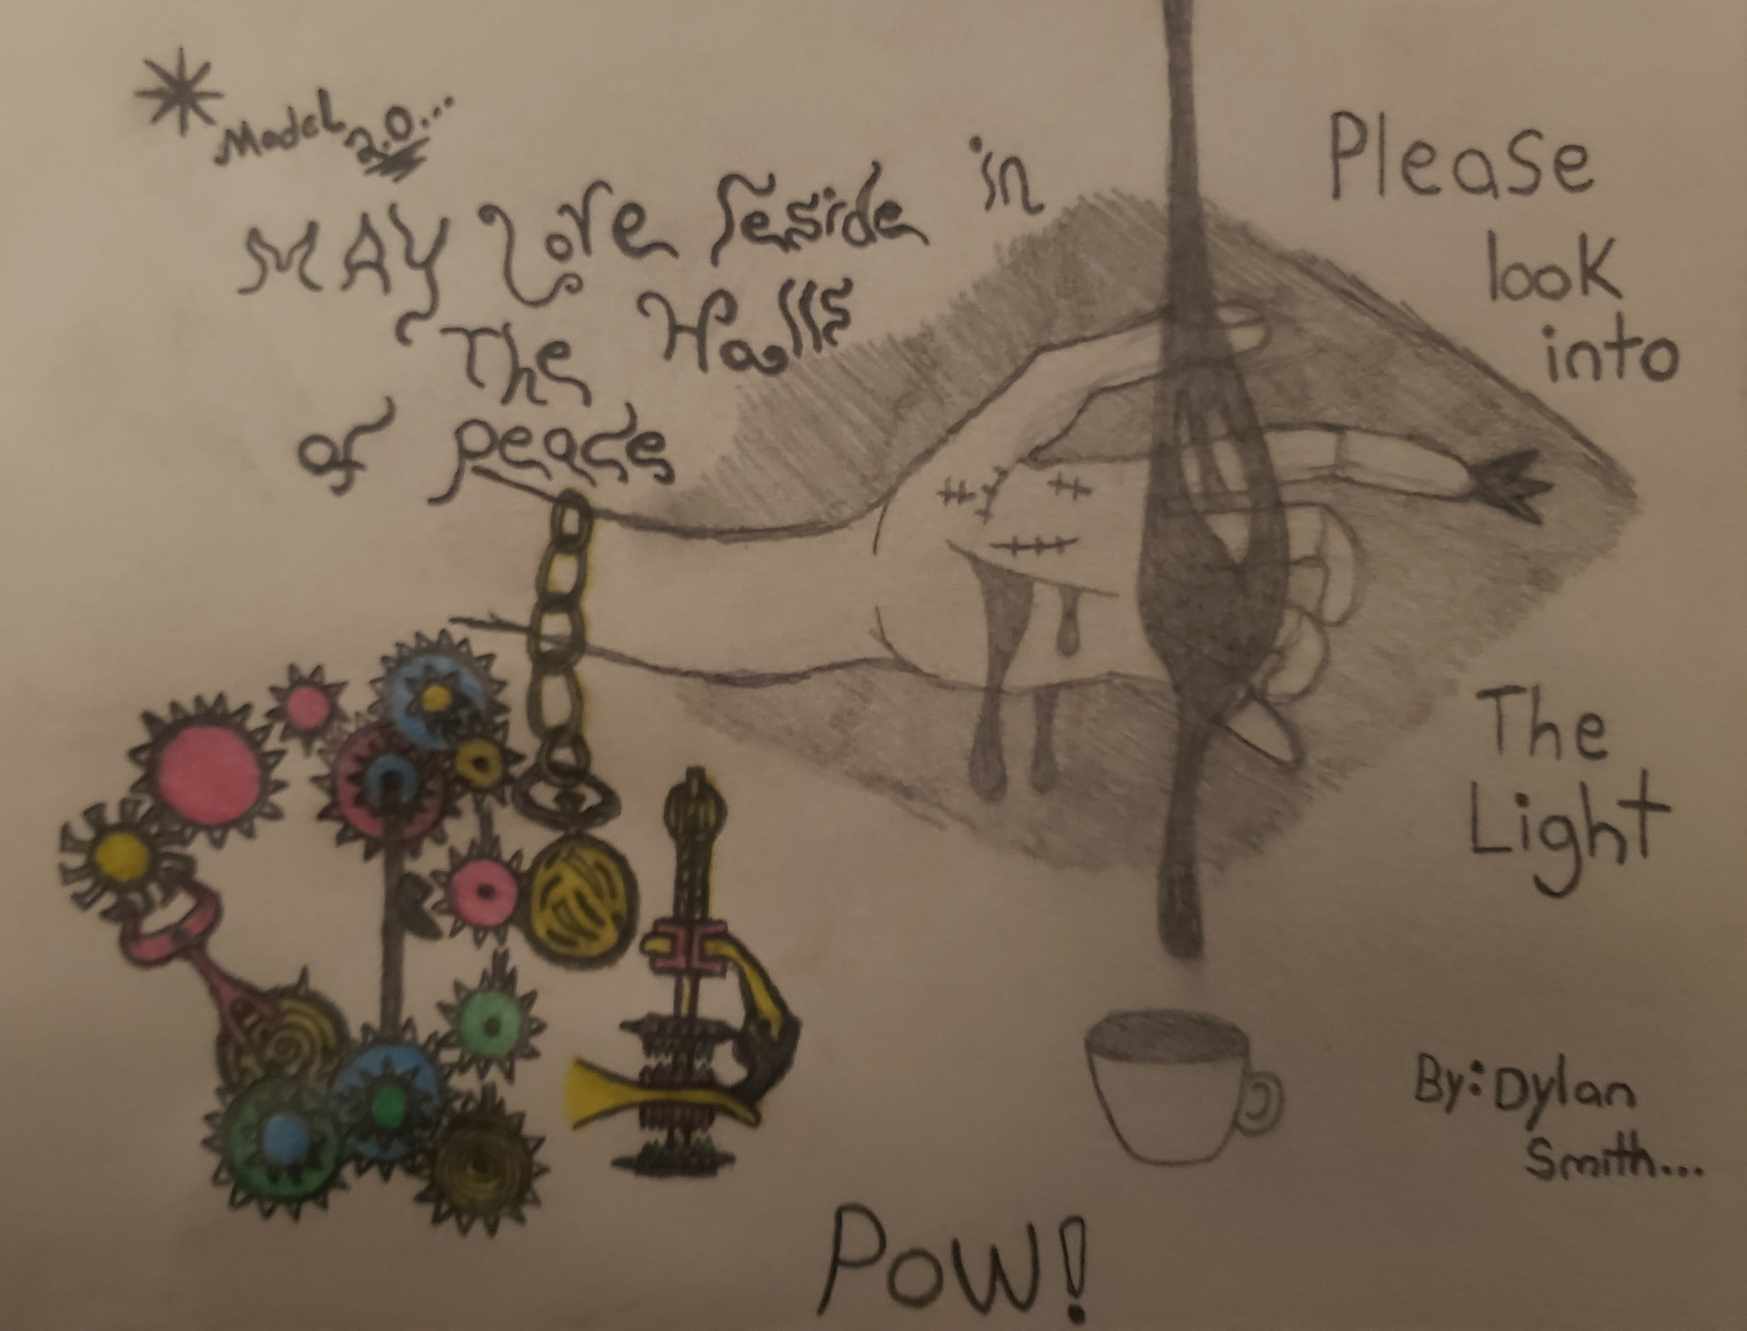 Model 2.0...
MAY Love reside in
The Halls
of peace
Please
look
into
The
Light
By: Dylan
Smith...
POW!